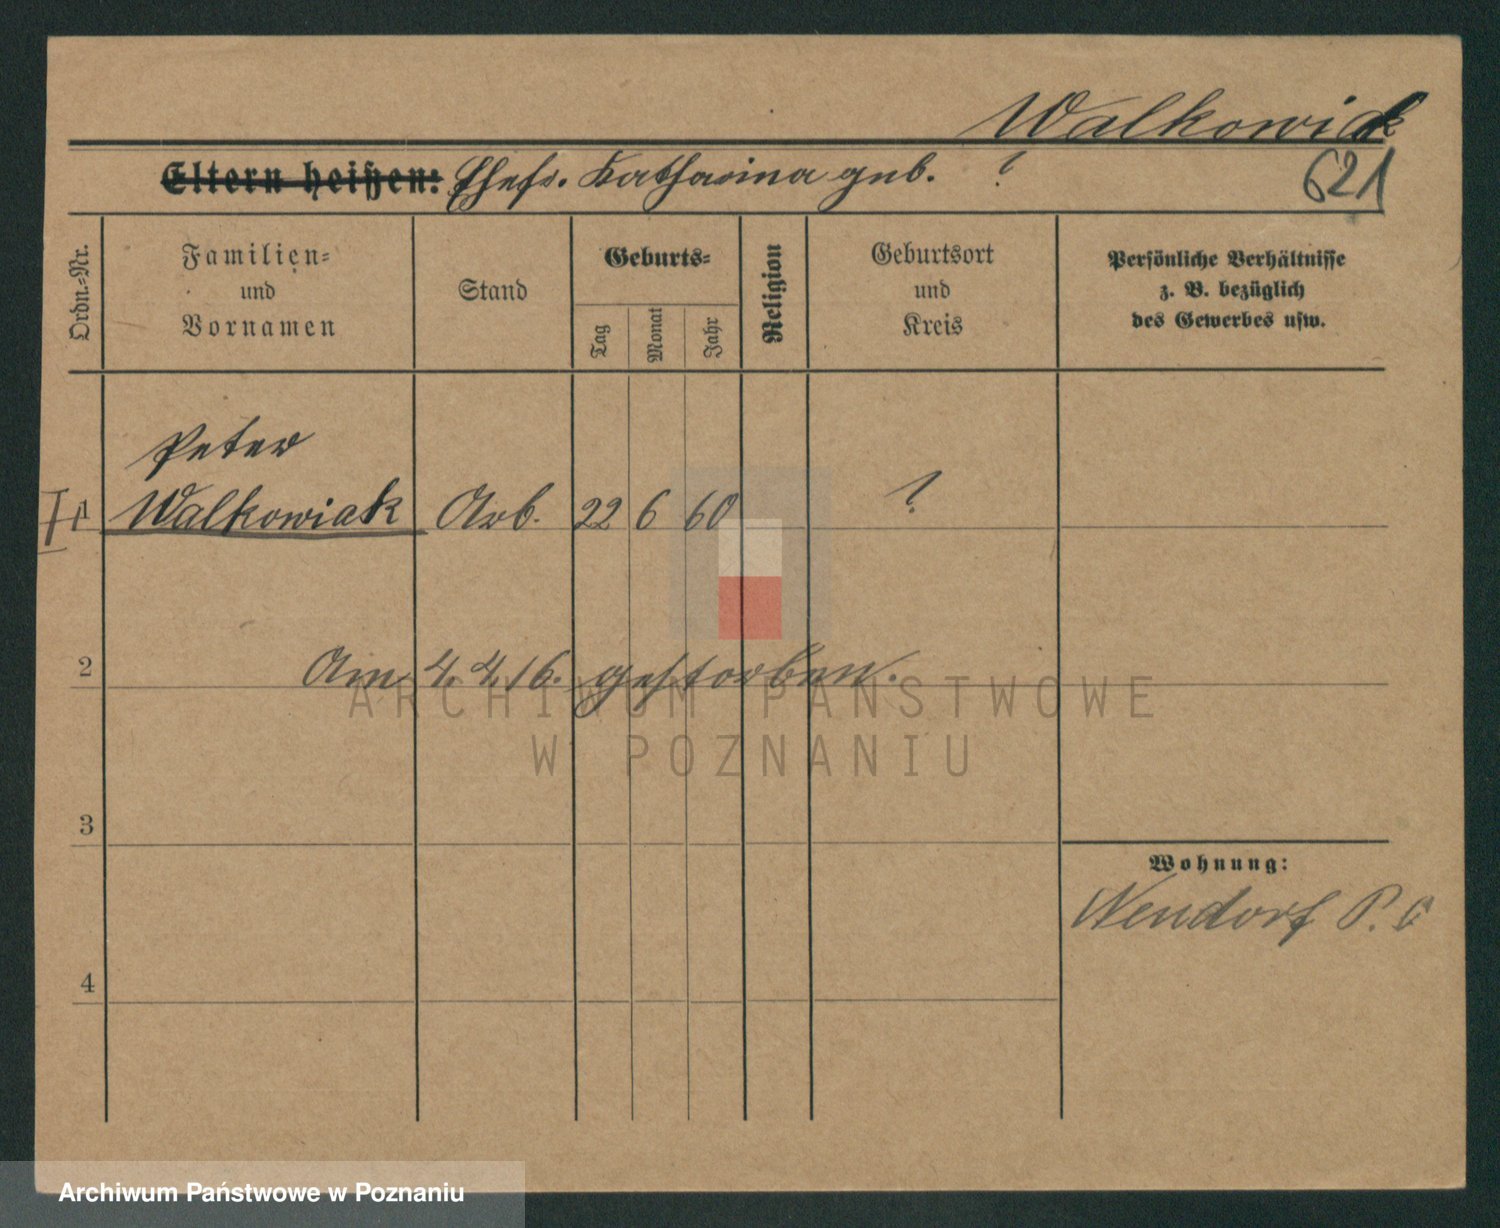 Walkowiak
Eltern heißen: Ehefr. Katharina geb. ?
621
Ordn.-Nr.
Familien-
und
Vornamen
Stand
Geburts-
Tag
Monat
Jahr
Religion
Geburtsort
und
Kreis
Persönliche Verhältnisse
z. B. bezüglich
des Gewerbes usw.
Peter
1 Walkowiak Arb. 22 6 60 ?
2 Am 4.4.16. gestorben.
ARCHIWUM PAŃSTWOWE
W POZNANIU
3
Wohnung:
Wendorf P.
4
Archiwum Państwowe w Poznaniu